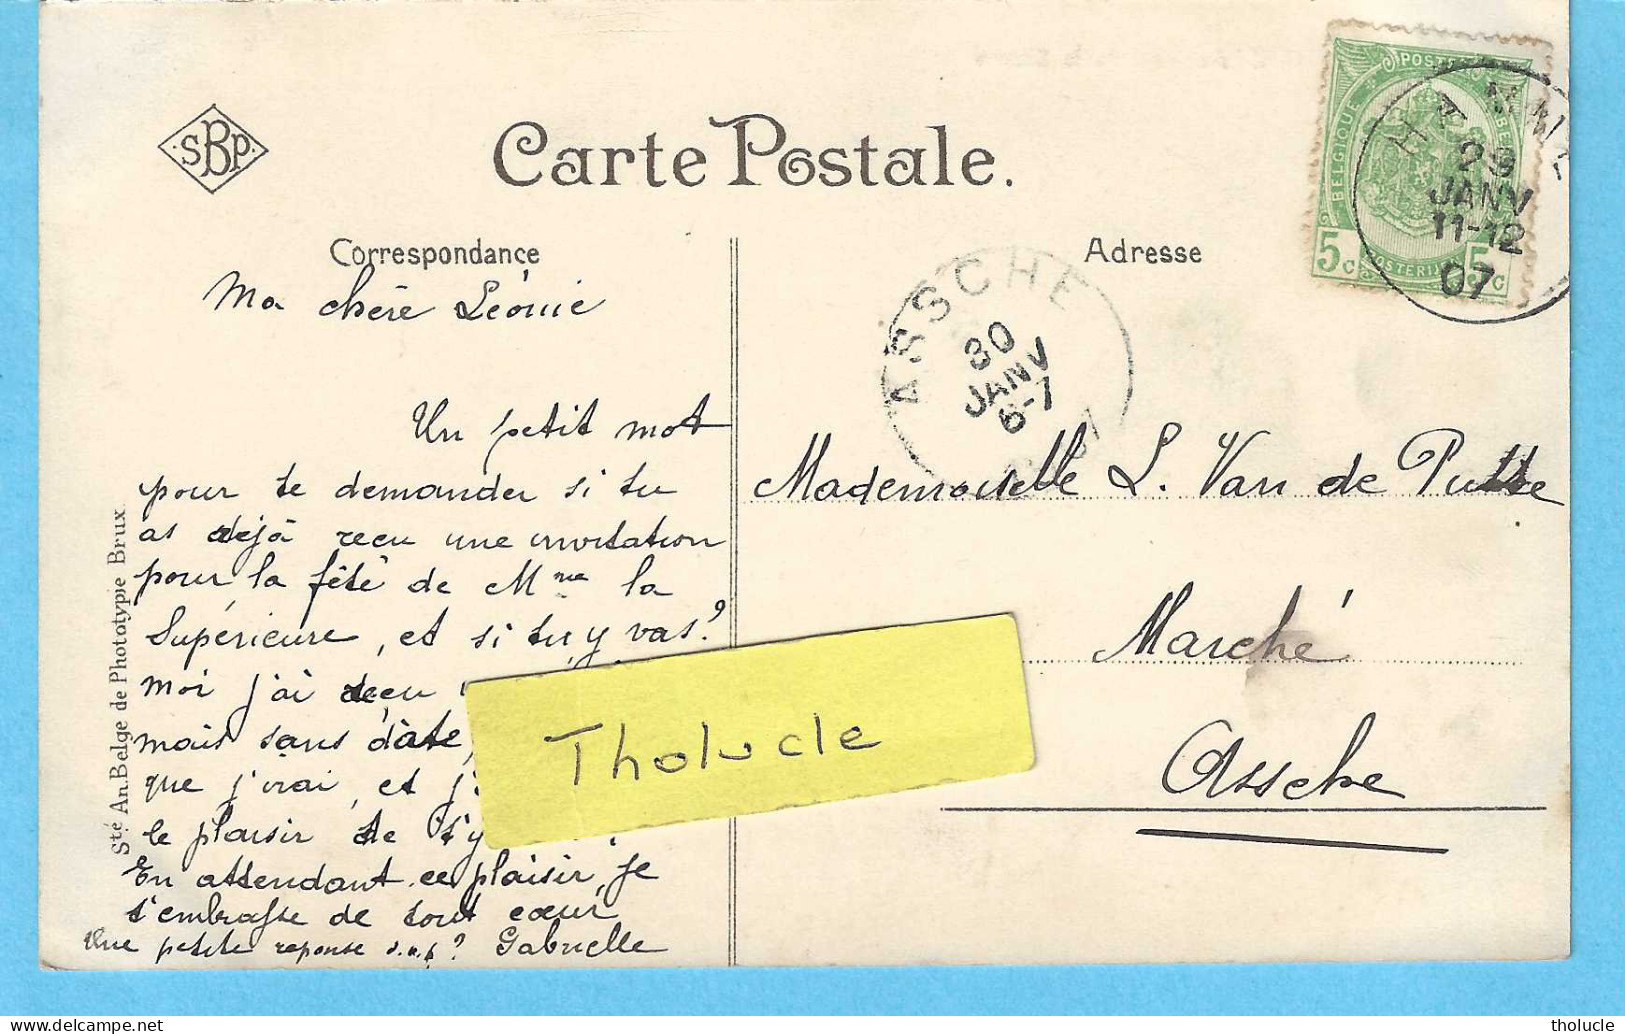 SBP
Carte Postale.
Correspondance
Adresse
POSTES
BELGIQUE
5c
5c
29
JANV
11-12
07
ASSCHE
30
JANV
6-7
Ma chère Léonie
Un petit mot
pour te demander si tu
as déjà reçu une invitation
pour la fête de Mme la
Supérieure, et si tu y vas?
Moi j'ai reçu
mais sans date,
que j'irai, et j'
le plaisir de t'y
En attendant ce plaisir, je
t'embrasse de tout cœur
Une petite réponse s.v.p? Gabrielle
Mademoiselle L. Van de Putte
Marché
Assche
Sté An. Belge de Phototypie Brux.
Tholucle
tholucle